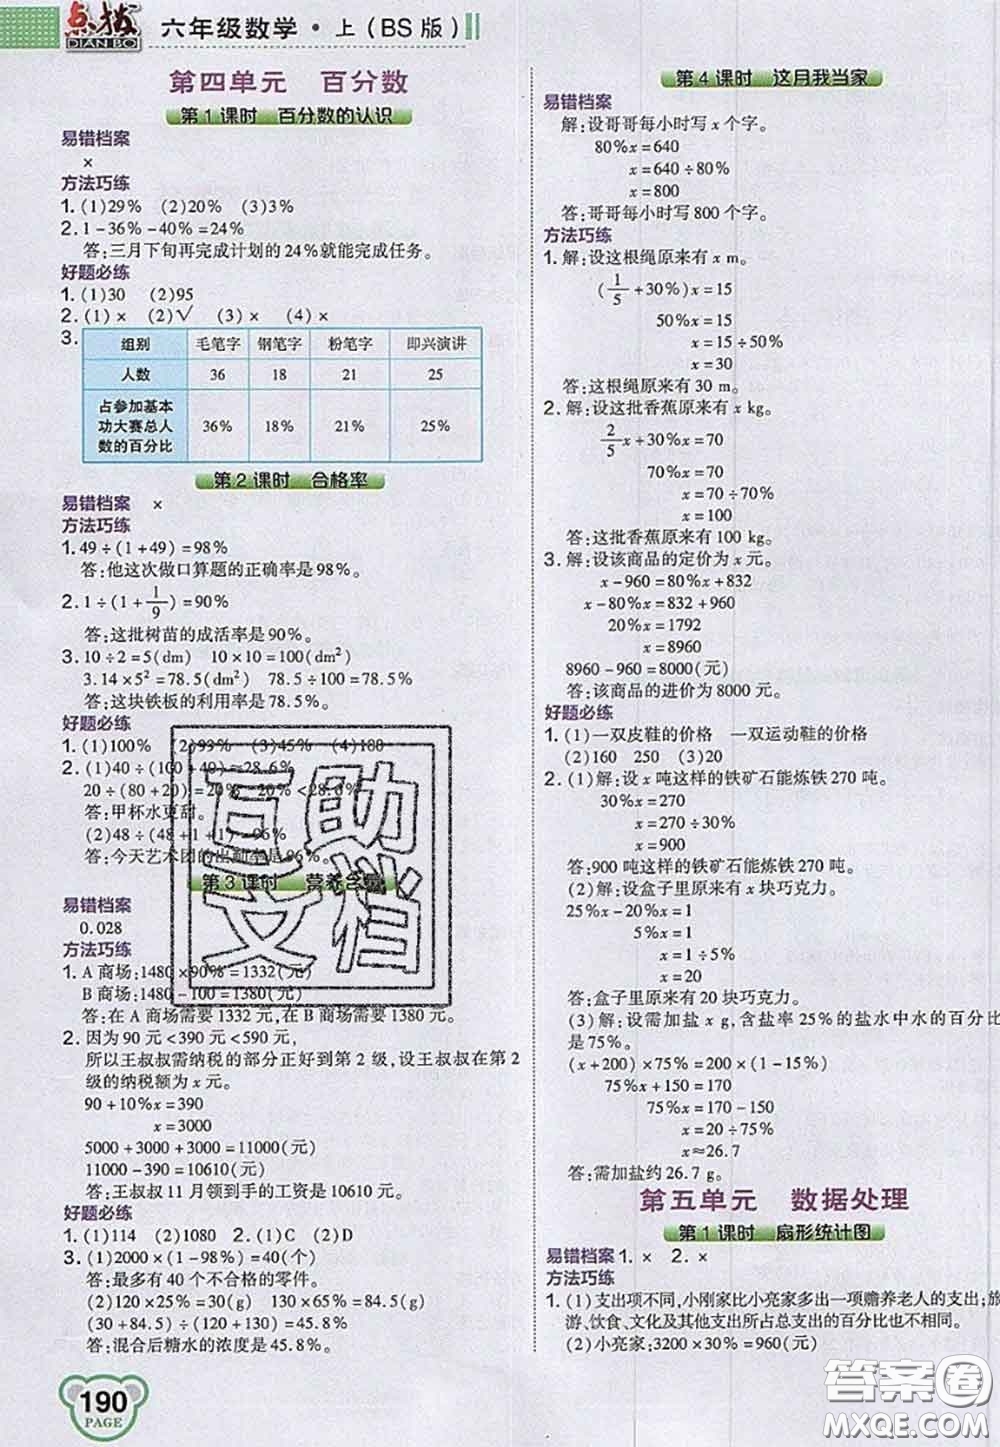 点拨 DIAN BO
六年级数学·上(BS版)
第四单元 百分数
第1课时 百分数的认识
易错档案
×
方法巧练
1.(1)29% (2)20% (3)3%
2.1-36%-40%=24%
答:三月下旬再完成计划的24%就能完成任务。
好题必练
1.(1)30 (2)95
2.(1)× (2)√ (3)× (4)×
3.
组别 毛笔字 钢笔字 粉笔字 即兴演讲
人数 36 18 21 25
占参加基本
功大赛总人 36% 18% 21% 25%
数的百分比
第2课时 合格率
易错档案 ×
方法巧练
1.49÷(1+49)=98%
答:他这次做口算题的正确率是98%。
2.1÷(1+1/9)=90%
答:这批树苗的成活率是90%。
3.10÷2=5(dm) 10×10=100(dm²)
3.14×5²=78.5(dm²) 78.5÷100=78.5%
答:这块铁板的利用率是78.5%。
好题必练
1.(1)100% (2)99% (3)45% (4)100
2.(1)40÷(100+40)≈28.6%
20÷(80+20)=20% 20%<28.6%
答:甲杯水更甜。
(2)48÷(48+1+1)=96%
答:今天艺术团的出勤率是96%。
第3课时 营养含量
易错档案
0.028
方法巧练
1.A商场:1480×90%=1332(元)
B商场:1480-100=1380(元)
答:在A商场需要1332元,在B商场需要1380元。
2.因为90元<390元<590元,
所以王叔叔需纳税的部分正好到第2级,设王叔叔在第2
级的纳税额为x元。
90+10%x=390
x=3000
5000+3000+3000=11000(元)
11000-390=10610(元)
答:王叔叔11月领到手的工资是10610元。
好题必练
1.(1)114 (2)1080 2.(1)C (2)D
3.(1)2000×(1-98%)=40(个)
答:最多有40个不合格的零件。
(2)120×25%=30(g) 130×65%=84.5(g)
(30+84.5)÷(120+130)=45.8%
答:混合后糖水的浓度是45.8%。
190
PAGE
第4课时 这月我当家
易错档案
解:设哥哥每小时写x个字。
80%x=640
x=640÷80%
x=800
答:哥哥每小时写800个字。
方法巧练
1.解:设这根绳原来有x m。
(1/5+30%)x=15
50%x=15
x=15÷50%
x=30
答:这根绳原来有30 m。
2.解:设这批香蕉原来有x kg。
2/5x+30%x=70
70%x=70
x=70÷70%
x=100
答:这批香蕉原来有100 kg。
3.解:设该商品的定价为x元。
x-960=80%x+832
x-80%x=832+960
20%x=1792
x=8960
8960-960=8000(元)
答:该商品的进价为8000元。
好题必练
1.(1)一双皮鞋的价格 一双运动鞋的价格
(2)160 250 (3)20
2.(1)解:设x吨这样的铁矿石能炼铁270吨。
30%x=270
x=270÷30%
x=900
答:900吨这样的铁矿石能炼铁270吨。
(2)解:设盒子里原来有x块巧克力。
25%x-20%x=1
5%x=1
x=1÷5%
x=20
答:盒子里原来有20块巧克力。
(3)解:设需加盐x g,含盐率25%的盐水中水的百分比
是75%。
(x+200)×75%=200×(1-15%)
75%x+150=170
75%x=170-150
x=20÷75%
x≈26.7
答:需加盐约26.7 g。
第五单元 数据处理
第1课时 扇形统计图
易错档案 1.× 2.×
方法巧练
1.(1)支出项不同,小刚家比小亮家多出一项赡养老人的支出;旅
游、饮食、文化及其他支出所占总支出的百分比也不相同。
(2)小亮家:3200×30%=960(元)
互助
文档
答案圈
MXQE.COM